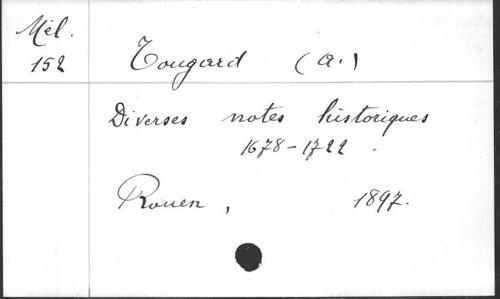 Mél.
152
Tougard (A.)
Diverses notes historiques
1678-1722.
Rouen, 1897.